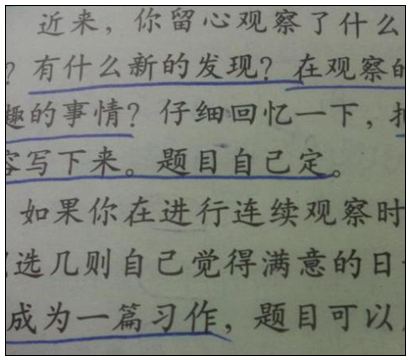 近来，你留心观察了什么
？有什么新的发现？在观察的
趣的事情？仔细回忆一下，
容写下来。题目自己定。
如果你在进行连续观察时
选几则自己觉得满意的日
成为一篇习作，题目可以